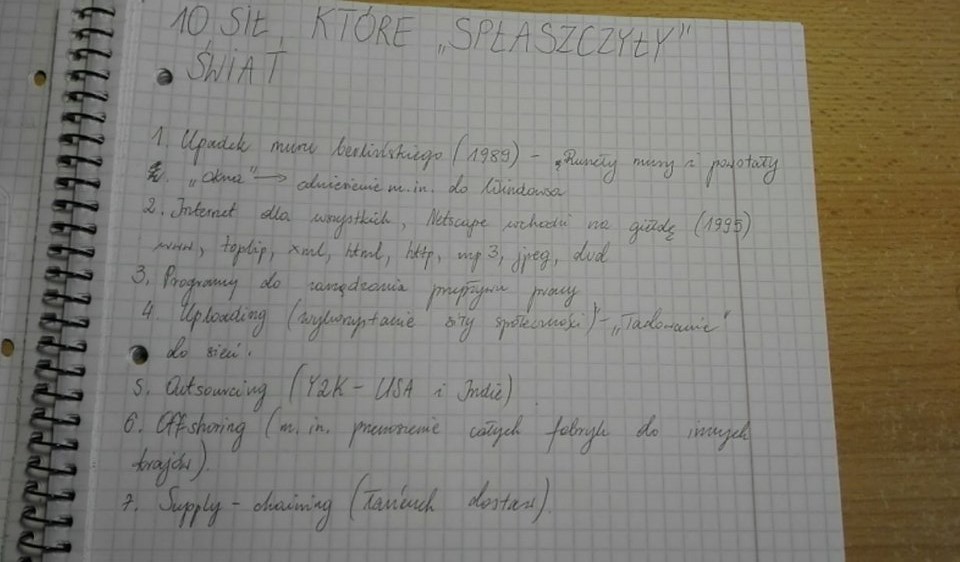 10 SIŁ, KTÓRE „SPŁASZCZYŁY”
ŚWIAT
1. Upadek muru berlińskiego (1989) – „Runęły mury i powstały
„okna” → odniesienie m.in. do Windowsa
2. Internet dla wszystkich, Netscape wchodzi na giełdę (1995)
www, tcp/ip, xml, html, http, mp3, jpeg, dvd
3. Programy do zarządzania przepływem pracy
4. Uploading (wykorzystanie siły społeczności) – „Ładowanie”
do sieci.
5. Outsourcing (Y2K – USA i Indie)
6. Offshoring (m.in. przenoszenie całych fabryk do innych
krajów).
7. Supply-chaining (łańcuch dostaw).